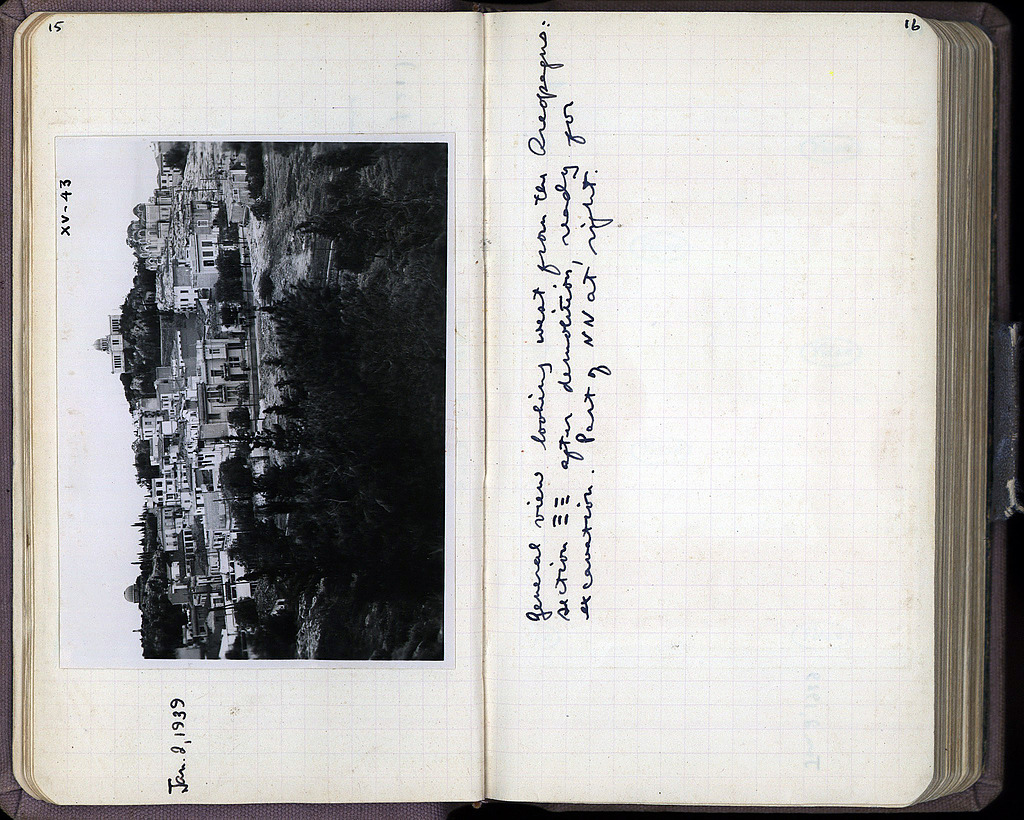 15
XV-43
Jan. 2, 1939
16
General view looking west from the Areopagus:
section ΞΞ after demolition, ready for
excavation. Part of NN at right.